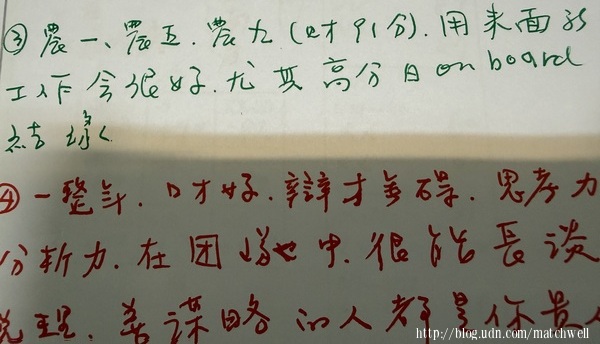 ③農一、農五.農九(口才91分).用来面試
工作会很好.尤其高分日on board
結緣
④一整年.口才好.辯才無碍.思考力
分析力.在团隊中.很能長談
說理.善謀略的人都是你貴人
http://blog.udn.com/matchwell